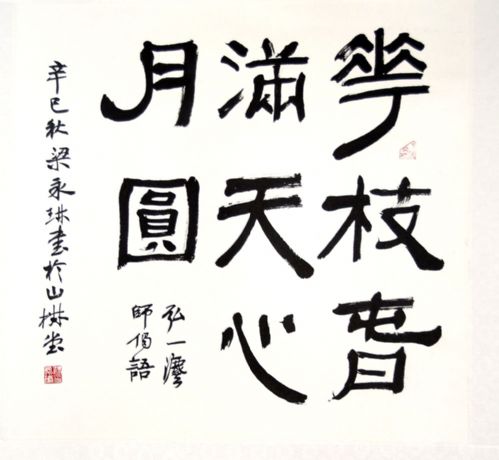 華枝旾
滿天心
月圓
弘一灋
師偈語
辛巳秋梁永琳書於山堂